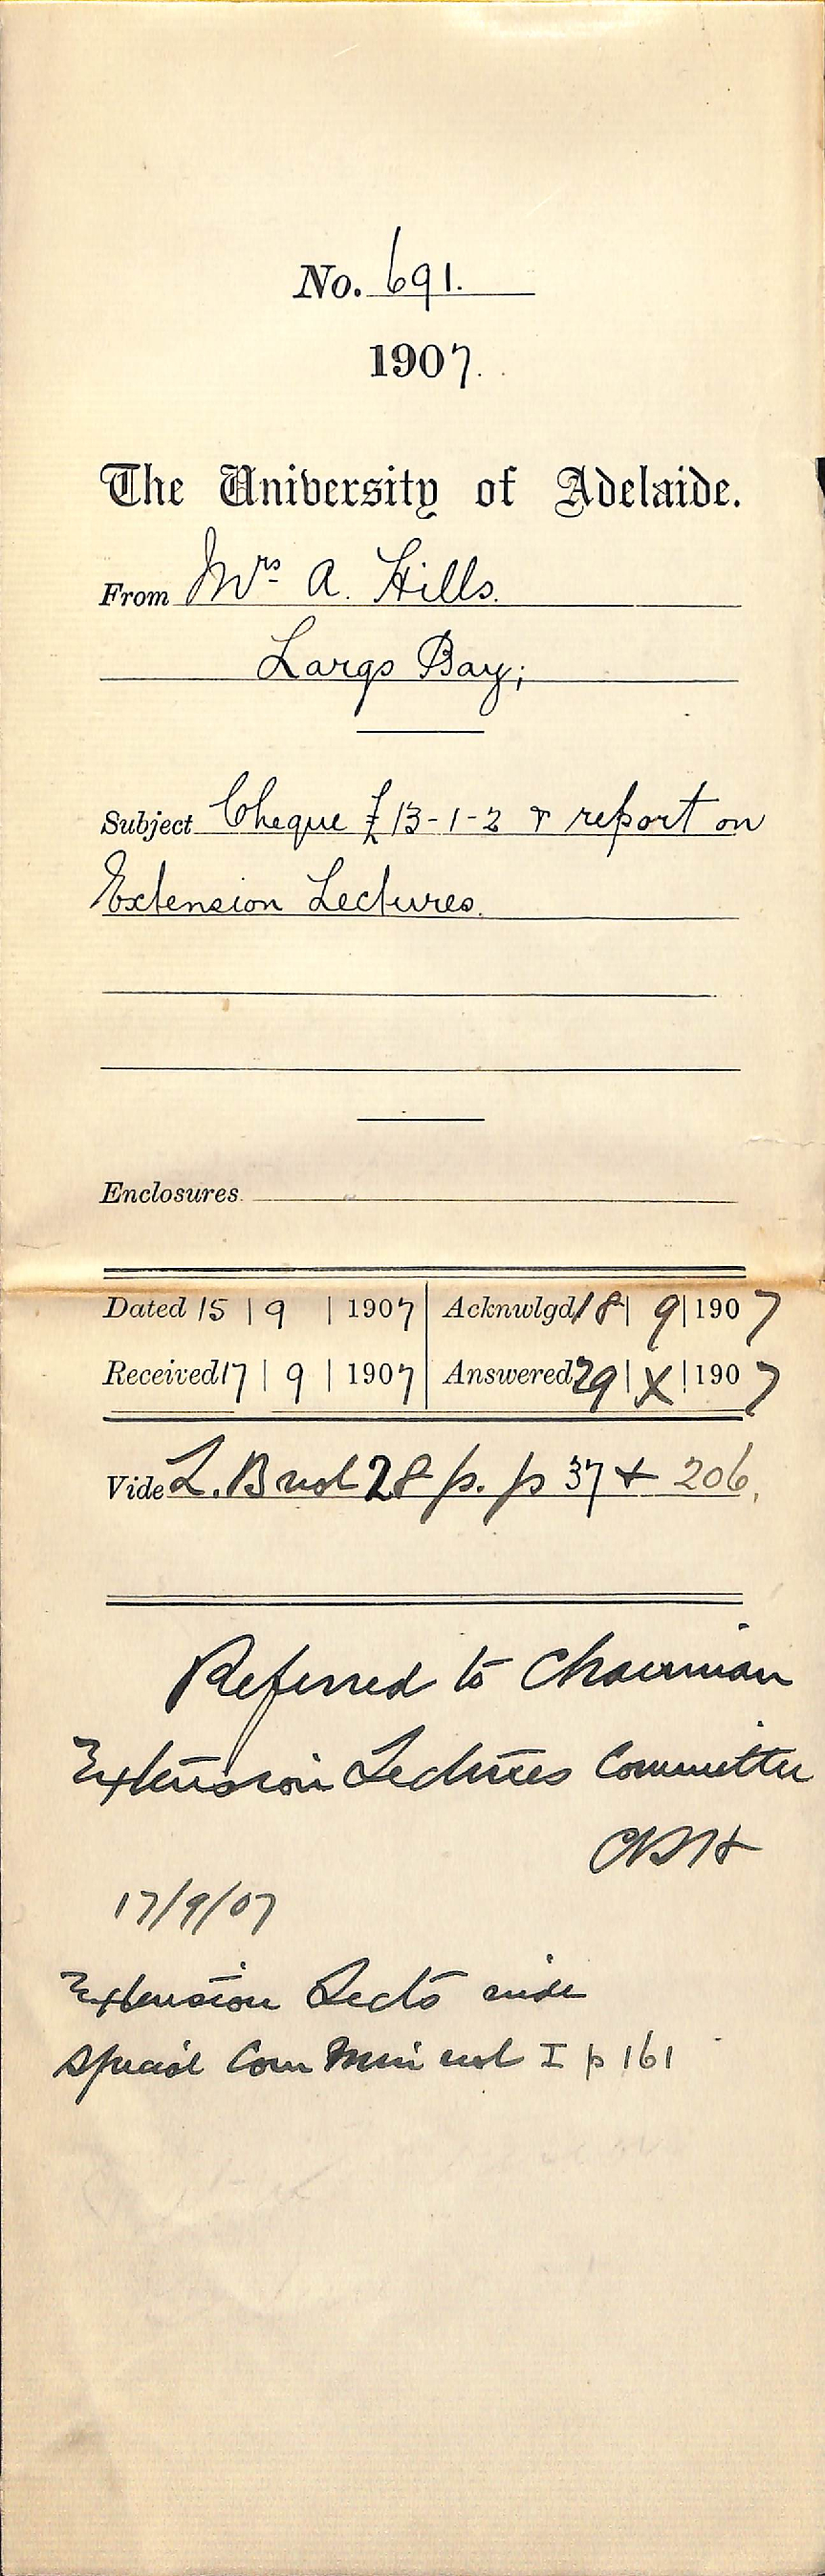 No. 691.
1907.
The University of Adelaide.
From Mrs A. Hills.
Largs Bay;
Subject Cheque £13-1-2 & report on
Extension Lectures.
Enclosures
Dated 15 | 9 | 1907 | Acknwlgd 18 | 9 | 1907
Received 17 | 9 | 1907 | Answered 29 | X | 1907
Vide L. B vol 28 p. p 37 + 206.
Referred to Chairman
Extension Lectures Committee
17/9/07
Extension Lects vide
Special Com Min vol I p 161